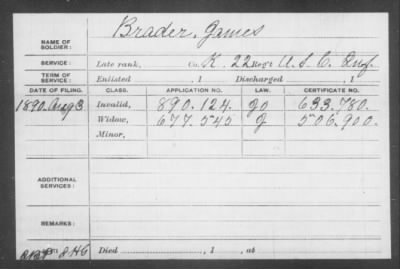 NAME OF SOLDIER: Brader, James
SERVICE: Late rank, Co. K, 22 Reg't U. S. C. Inf.
TERM OF SERVICE: Enlisted , 1 Discharged , 1
DATE OF FILING. CLASS. APPLICATION NO. LAW. CERTIFICATE NO.
1890. Aug 3 Invalid, 890.124. 633.780.
Widow, 677.545 506.900.
Minor,
ADDITIONAL SERVICES:
REMARKS:
Died , 1 , at